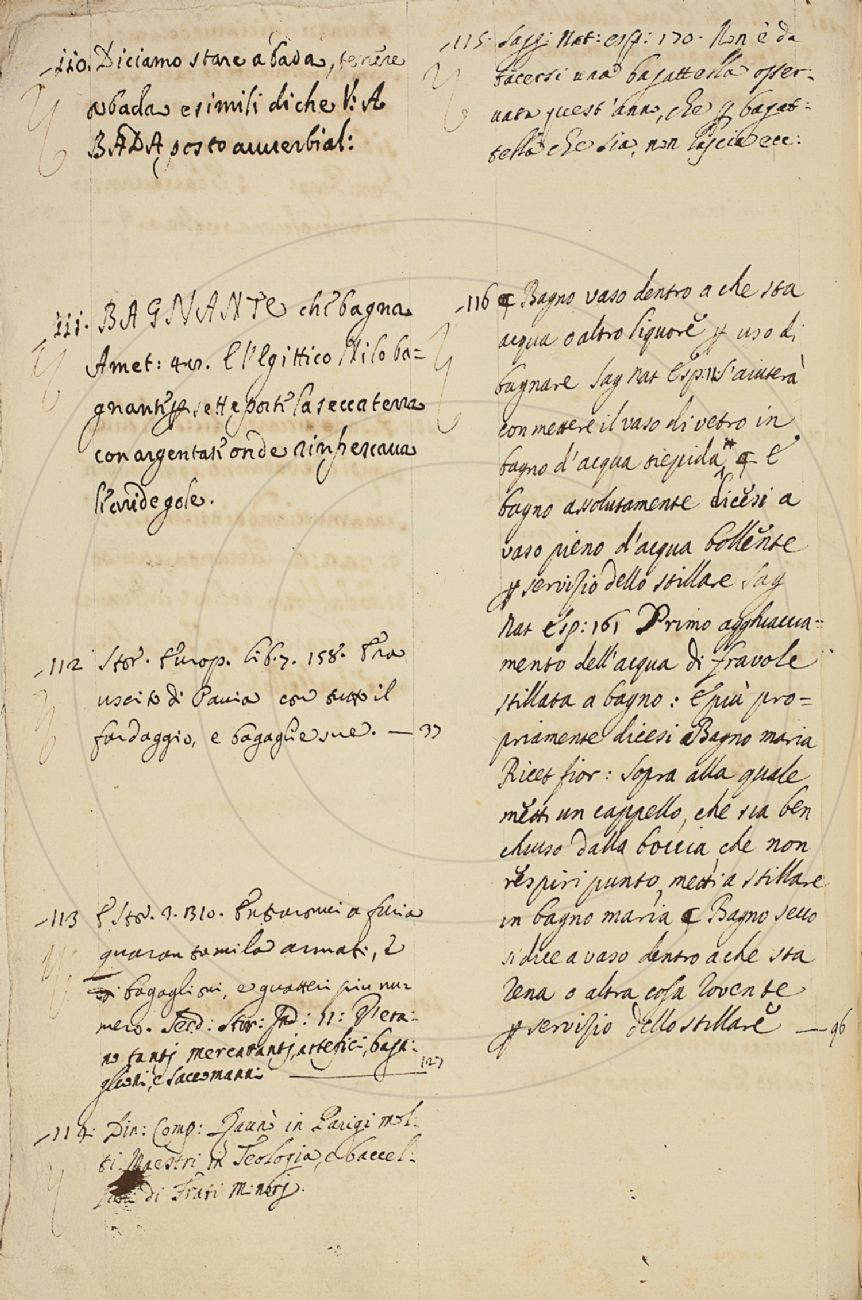 110. Diciamo stare a bada, tenere
a bada e simili di che V: A
BADA, posto avverbial:
111. BAGNANTE che bagna
Amet: 48. E l'Egittico Nilo ba=
gnante p sette porte la secca terra
con argentate onde rinfrescava
l'aride gole.
112 Stor. Europ. lib. 7. 158. Era
uscito di Pavia con tutto il
fardaggio, e bagaglie sue. — 37
113 E Stor. 2. 1310. Entaronvi a furia
quarantamila armati, e
di bagaglioni, e quatteri piu nu-
mero. Segd: Stor: Ind: 11: V'era-
no tanti mercatanti, artefici, baga-
glioni, e saccomanni — 127
114: Din: Comp: Raunò in Parigi mol-
ti Maestri in Teologia, e baccel-
di Frati Minori.
115. Sagg: Nat: esp: 170. Non è da
tacersi una bagattella osser-
vata quest'anno, che p bagat-
tella che sia, non lascia ecc:
116 ¶ Bagno vaso dentro a che sta
acqua o altro liquore p uso di
bagnare Sag Nat Esp: 11 S'aiuterà
con mettere il vaso di vetro in
bagno d'acqua tiepida ¶ E
bagno assolutamente dicesi a
vaso pieno d'acqua bollente
p servizio dello stillare Sag
Nat Esp: 161 Primo agghiaccia=
mento dell'acqua di fravole
stillata a bagno: E più pro=
priamente dicesi Bagno maria
Ricet fior: Sopra alla quale
metti un cappello, che sia ben
chiuso dalla boccia, che non
respiri punto, metti a stillare
in bagno maria ¶ Bagno secco
si dice a vaso dentro a che sta
rena o altra cosa rovente
p servizio dello stillare — 96